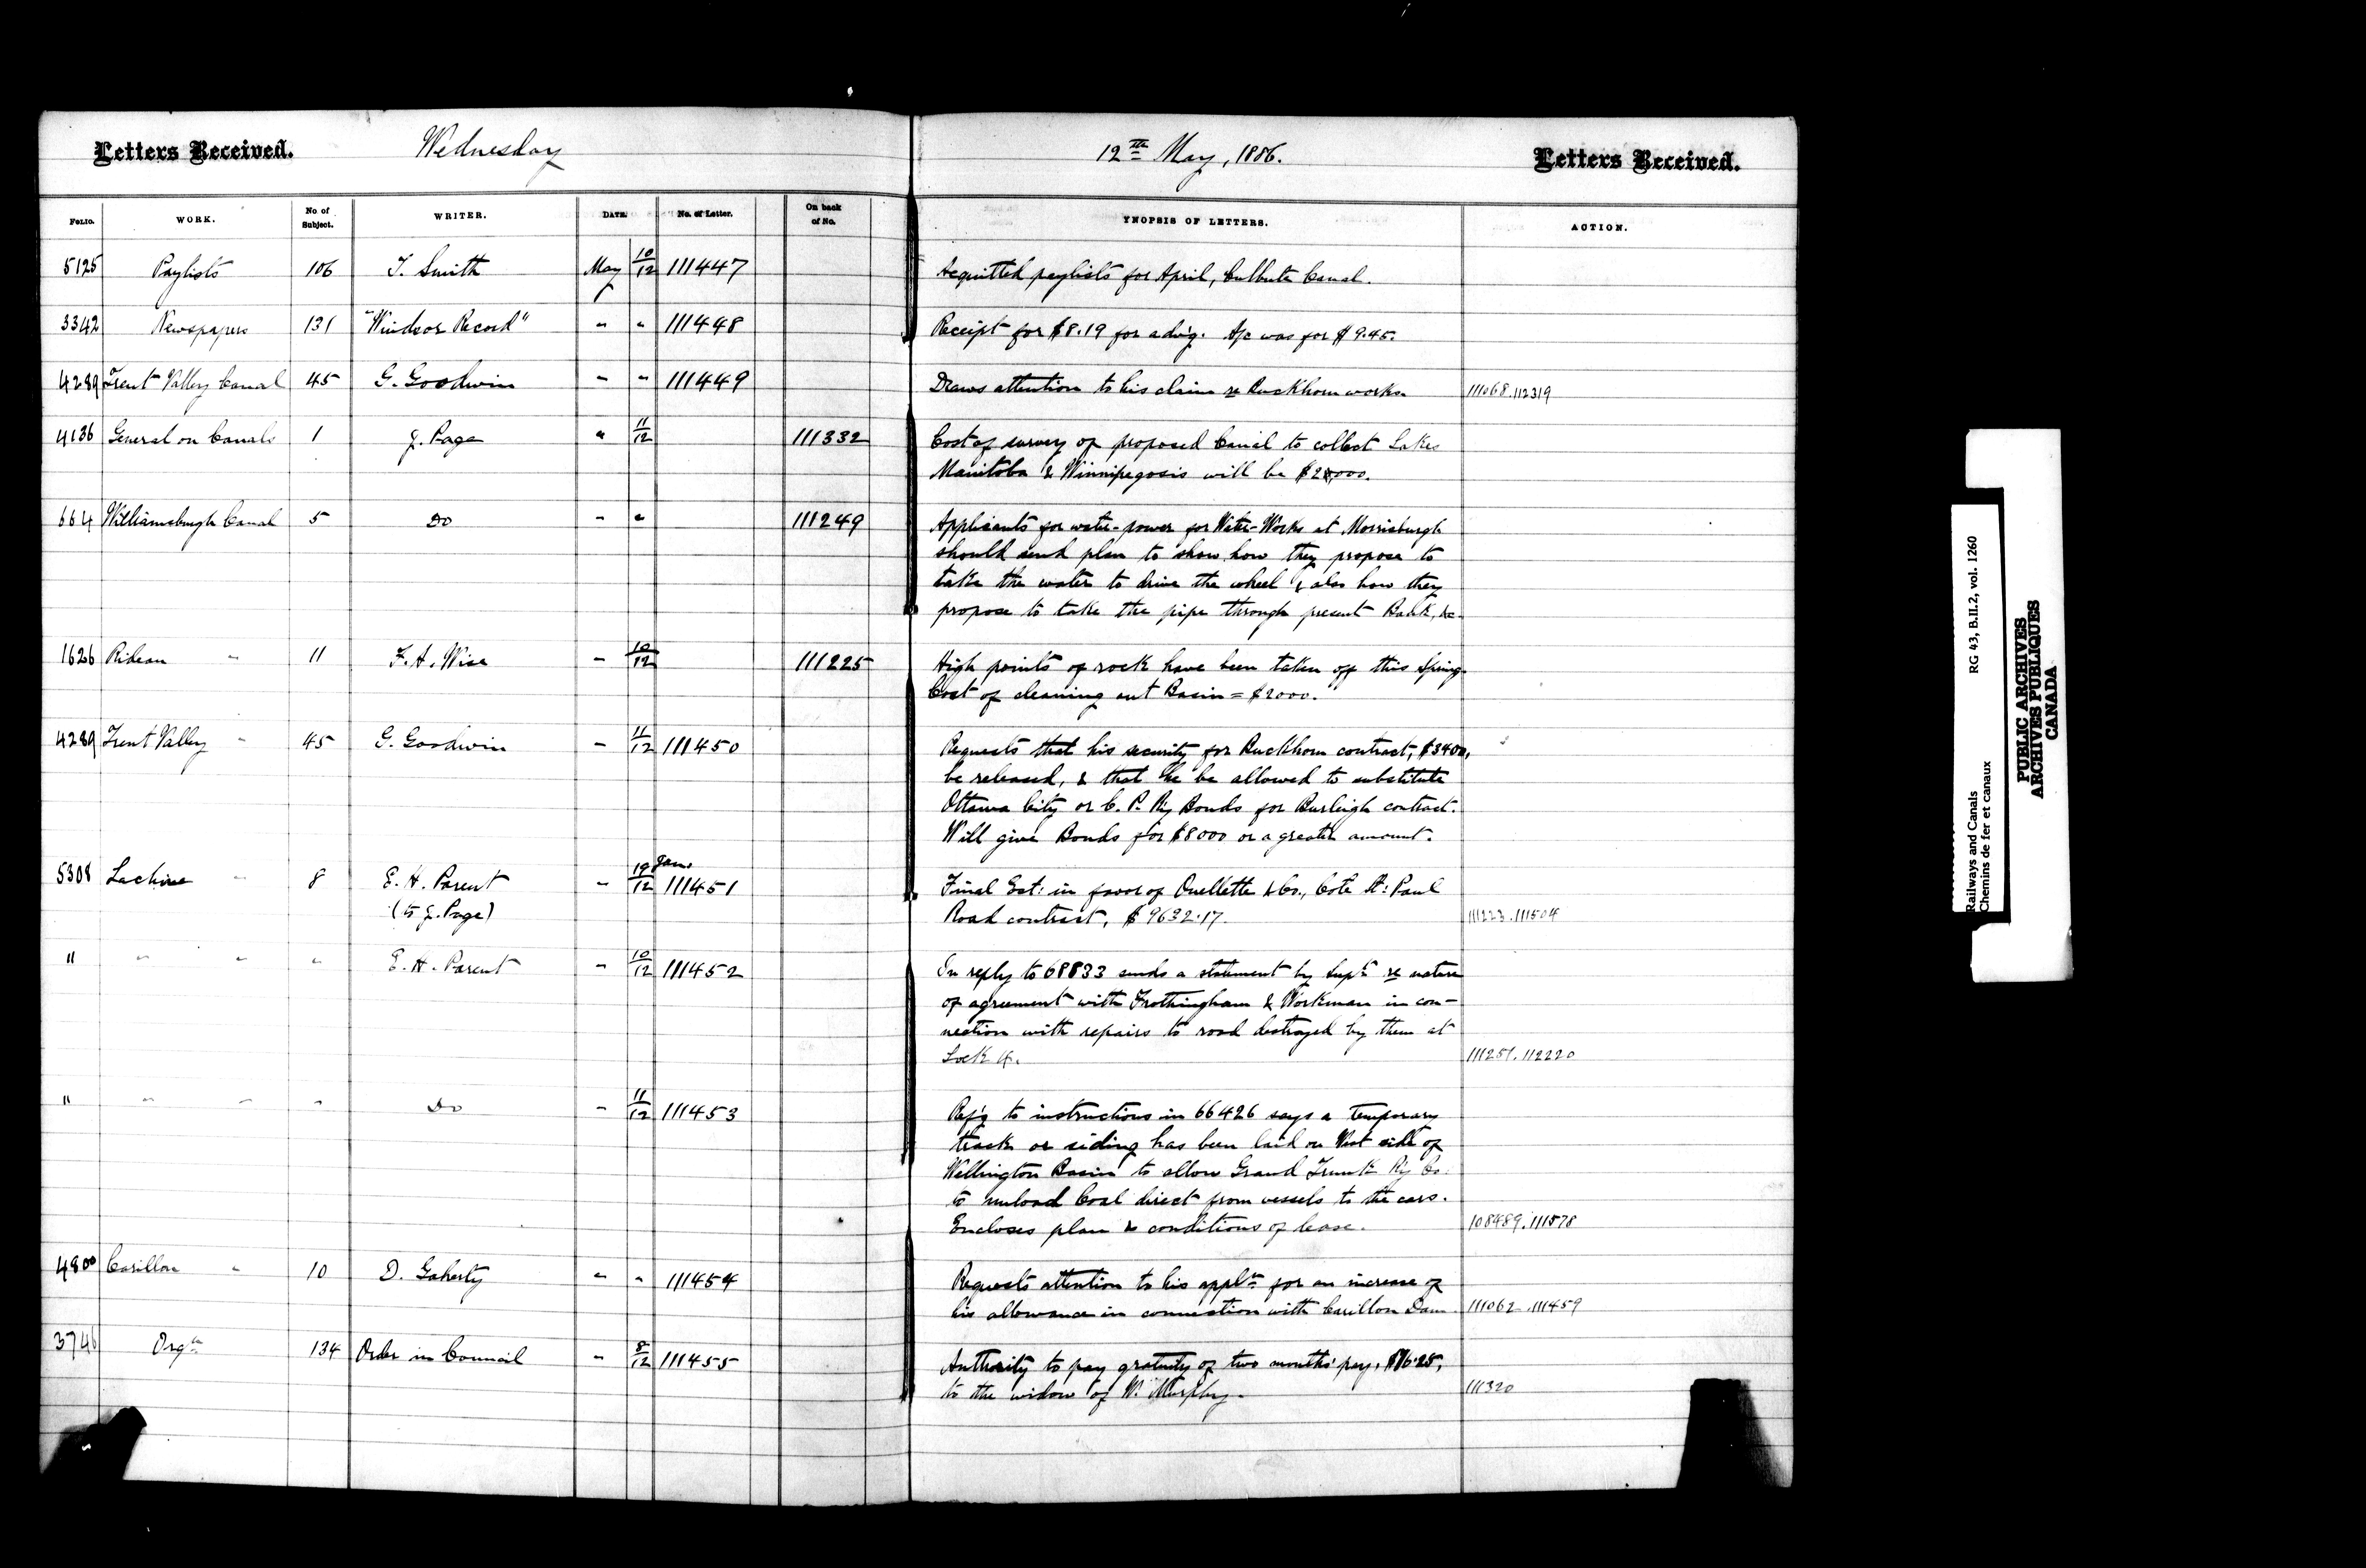 Letters Received. Wednesday 12th May, 1886. Letters Received.
FOLIO. WORK. No of Subject. WRITER. DATE. No. of Letter. On back of No. YNOPSIS OF LETTERS. ACTION.
5125 Paylists 106 T. Smith May 10/12 111447 Acquitted paylists for April, Culbute Canal.
3342 Newspapers 131 "Windsor Record" " " 111448 Receipt for $8.19 for adv'g. A/c was for $9.45.
4289 Trent Valley Canal 45 G. Goodwin " " 111449 Draws attention to his claim re Buckhorn works. 111068.112319
4136 General on Canals 1 J. Page " 11/12 111332 Cost of survey of proposed Canal to collect Lakes
Manitoba & Winnipegosis will be
664 Williamsburgh Canal 5 Do " " 111249 Applicants for water-power for Water-Works at Morrisburgh
should send plan to show how they propose to
take the water to drive the wheel & also how they
propose to take the pipe through present Bank, &c.
1626 Rideau " 11 F. A. Wise " 10/12 111225 High points of rock have been taken off this Spring.
Cost of cleaning out Basin = $2000.
4289 Trent Valley " 45 G. Goodwin " 11/12 111450 Requests that his security for Buckhorn contract, $3400,
be released, & that he be allowed to substitute
Ottawa City or C. P. R'y Bonds for Burleigh contract.
Will give Bonds for $8000 or a greater amount.
5308 Lachine " 8 E. H. Parent " 19 Jan./12 111451 Final Est: in favor of Ouellette & Co., Cote St: Paul
(to J. Page) Road contract, $9632.17. 111223.111504
" " " " E. H. Parent " 10/12 111452 In reply to 68833 sends a statement by Supt re nature
of agreement with Frothingham & Workman in con-
nection with repairs to road destroyed by them at
Lock 4. 111251.112220
" " " " Do " 11/12 111453 Ref'g to instructions in 66426 says a temporary
track or siding has been laid on West side of
Wellington Basin to allow Grand Trunk R'y Co.
to unload Coal direct from vessels to the cars.
Encloses plan & conditions of lease. 108489.111578
4800 Carillon " 10 D. Gaherty " " 111454 Requests attention to his appln for an increase of
his allowance in connection with Carillon Dam. 111062.111459
3746 Orgn 134 Order in Council " 8/12 111455 Authority to pay gratuity of two months' pay,
to the widow of W. Murphy. 111320
Railways and Canals RG 43, B.II.2, vol. 1260
Chemins de fer et canaux
PUBLIC ARCHIVES
ARCHIVES PUBLIQUES
CANADA